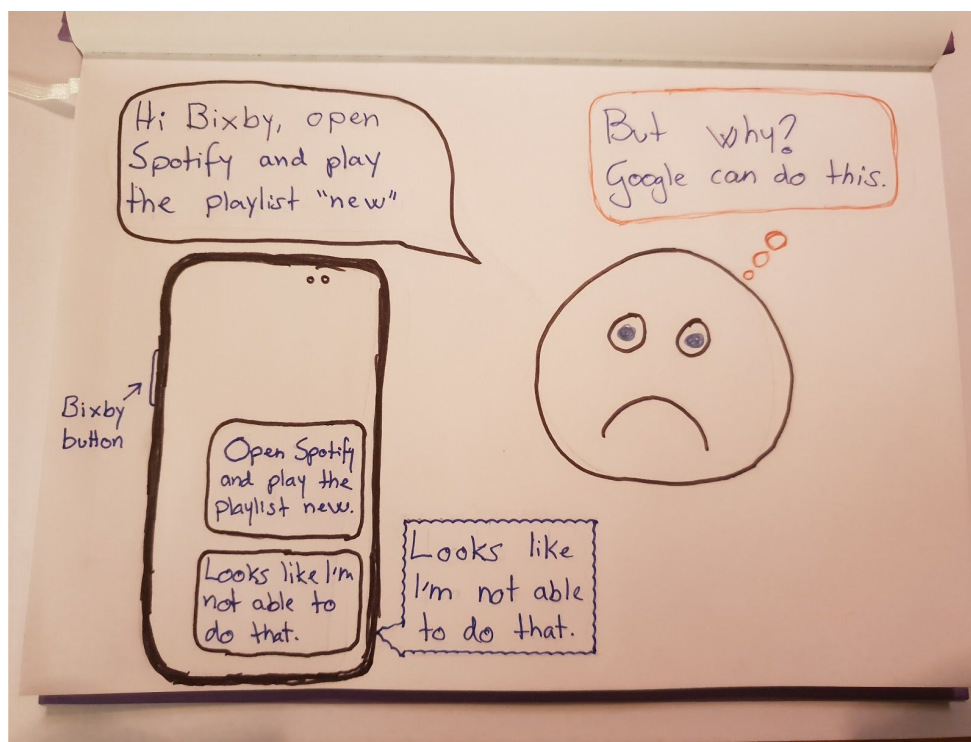 Hi Bixby, open
Spotify and play
the playlist "new"
But why?
Google can do this.
Bixby
button
Open Spotify
and play the
playlist new.
Looks like I'm
not able to
do that.
Looks like
I'm not able
to do that.